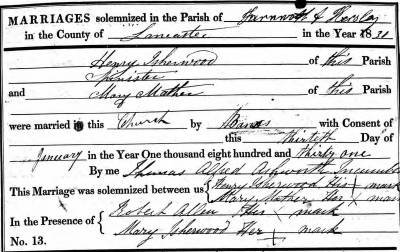 MARRIAGES solemnized in the Parish of Farnworth & Kersley
in the County of Lancaster in the Year 1831
Henry Isherwood of this Parish
Minister
and Mary Mather of this Parish
were married in this Church by Banns with Consent of
this thirtieth Day of
January in the Year One thousand eight hundred and thirty one
By me Thomas Alfred Ashworth Incumbent
This Marriage was solemnized between us Henry Isherwood His X mark
Mary Mather Her X mark
In the Presence of Robert Allen His X mark
Mary Isherwood Her X mark
No. 13.